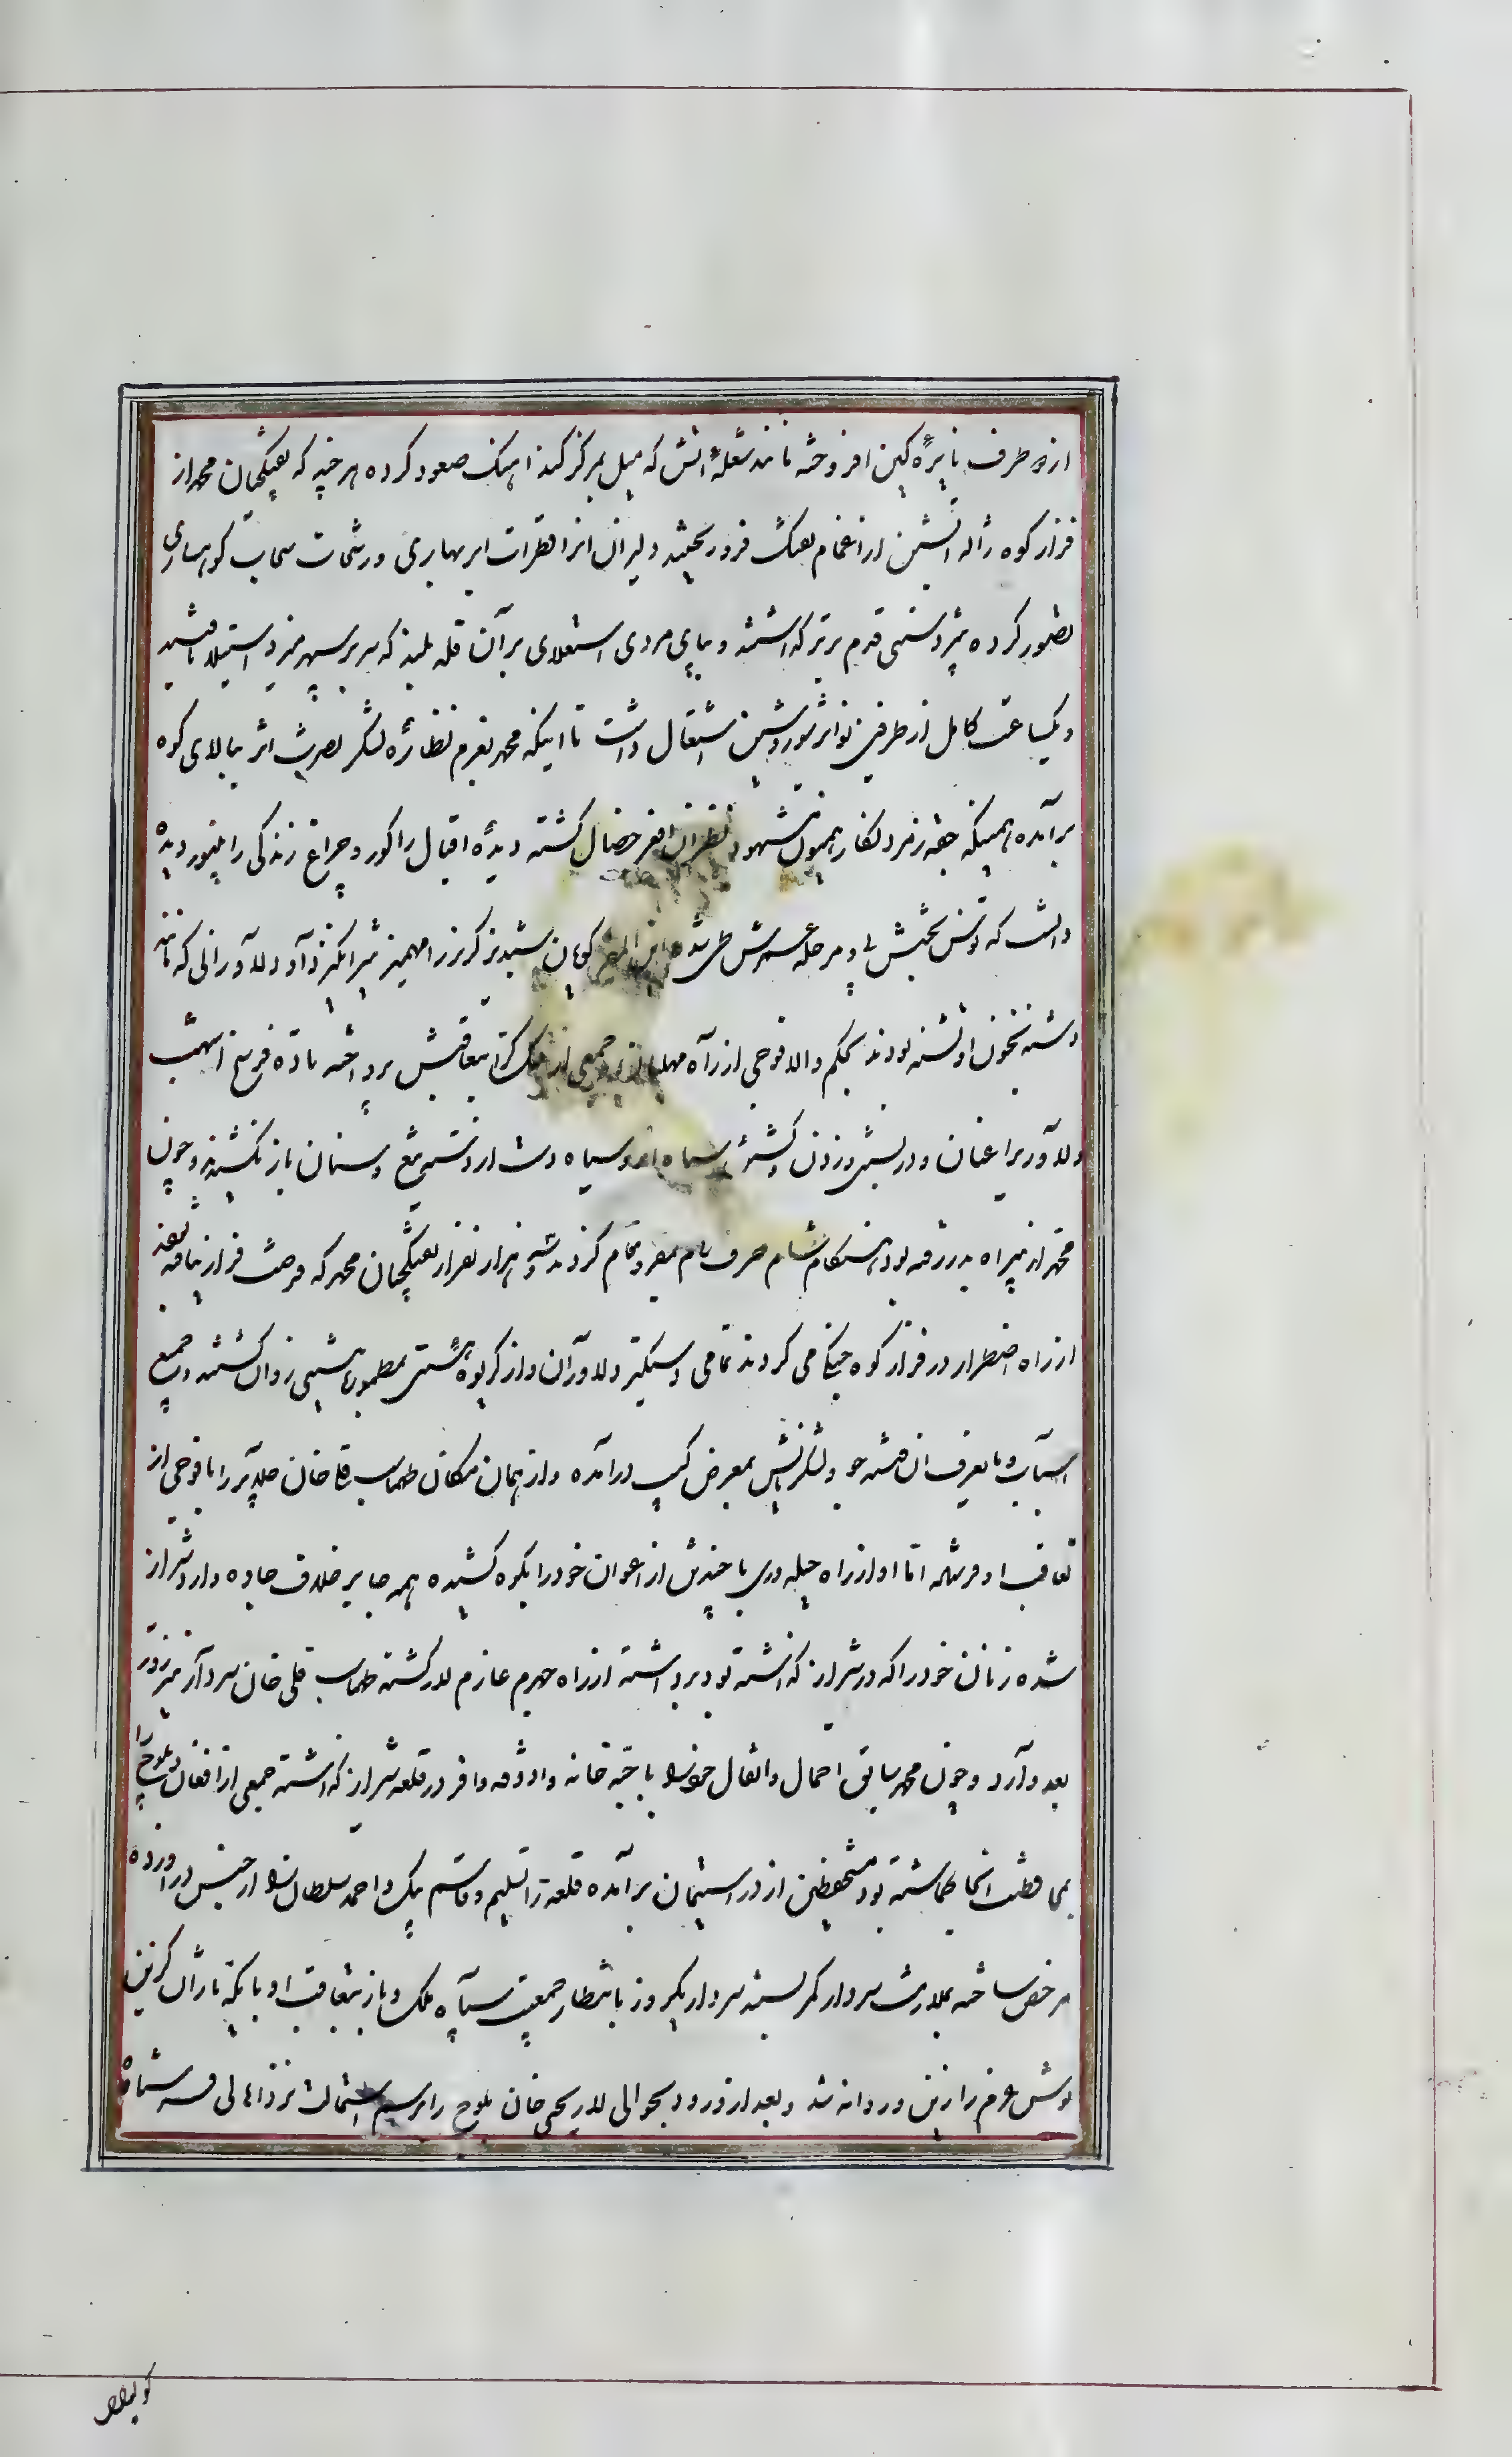 از هر طرف نایرهٔ کین افروخته مانند شعلهٔ آتش که میل بمرکز کند آهنک صعود کرده هر چند که تفنکچیان محمد از
فراز کوه ژاله آتشین از غمام تفنک فرو ریختند دلیران انرا قطرات ابر بهاری و رشحات سحاب کوهساری
تصور کرده بتیزدستی قدم برتر کذاشتند و بپای مردی استعلای بر آن قله بلند که سر بر سپهر میزد استیلا یافتند
و یکساعت کامل از طرفین نوایر شور و شین اشتعال داشت تا اینکه محمد بعزم نظاره لشکر نصرت اثر ببالای کوه
برآمده همینکه جقه زمرد نکار همیون مشهود نظر آن افعی خصال کشته دیدهٔ اقبال را کور و چراغ زندکی را بینور دیده
دانست که توسن بختش پی و مرحله عمرش طی شده این المفر کویان شبدیز کریز را مهمیز تیز انکیز داد دلاورانی که مانند
دشنه بخون او تشنه بودند بحکم والا فوجی از راه و جمعی از بتعاقبش پرداخته تا ده فرسخ اشهب
دلاوریرا عنان و در بستن و زدن و کشتن سپاه دست از دشنه و تیغ و سنان باز نکشیدند و چون
محمد از بیراه بدر رفته بود هنکام شام صرف زمام بمقر و مقام کردند سه هزار نفر از تفنکچیان محمد که فرصت فرار نیافته بودند
از راه اضطرار در فراز کوه جنک می کردند تمامی دستکیر دلاوران و از کریوه هستی بمطموره نیستی روان کشتند و جمیع
اسباب و مایعرف ان فتنه جو و لشکرش بمعرض کسب درآمده و از همان مکان طهماسب قلی خان جلایر را با فوجی از
تعاقب او فرستاد اما او از راه حیله وری با چند تن از اعوان خود را بکوه کشیده همه جا بر خلاف جاده وارد شیراز
شده زنان خود را که در شیراز کذاشته بود برداشته از راه جهرم عازم لار کشته طهماسب قلی خان سردار نیز روز
بعد وارد و چون محمد سابق احمال و اثقال خود را با جبه خانه و اذوقه وافر در قلعه شیراز کذاشته جمعی از افغان و بلوچ را
بمحافظت انجا کماشته بود مستحفظین از در استیمان برآمده قلعه را تسلیم و قاسم بیک و احمد سلطان را از حبس در اورده
مرخص ساخته بملازمت سردار کمر بسته سردار یکروز بانتظار جمعیت سپاه مکث و باز بتعاقب او بایکه تازان کزین
توسن عزم را زین و روانه شد و بعد از ورود بحوالی لار یحیی خان بلوچ را برسم استمالت نزد اهالی فرستاده